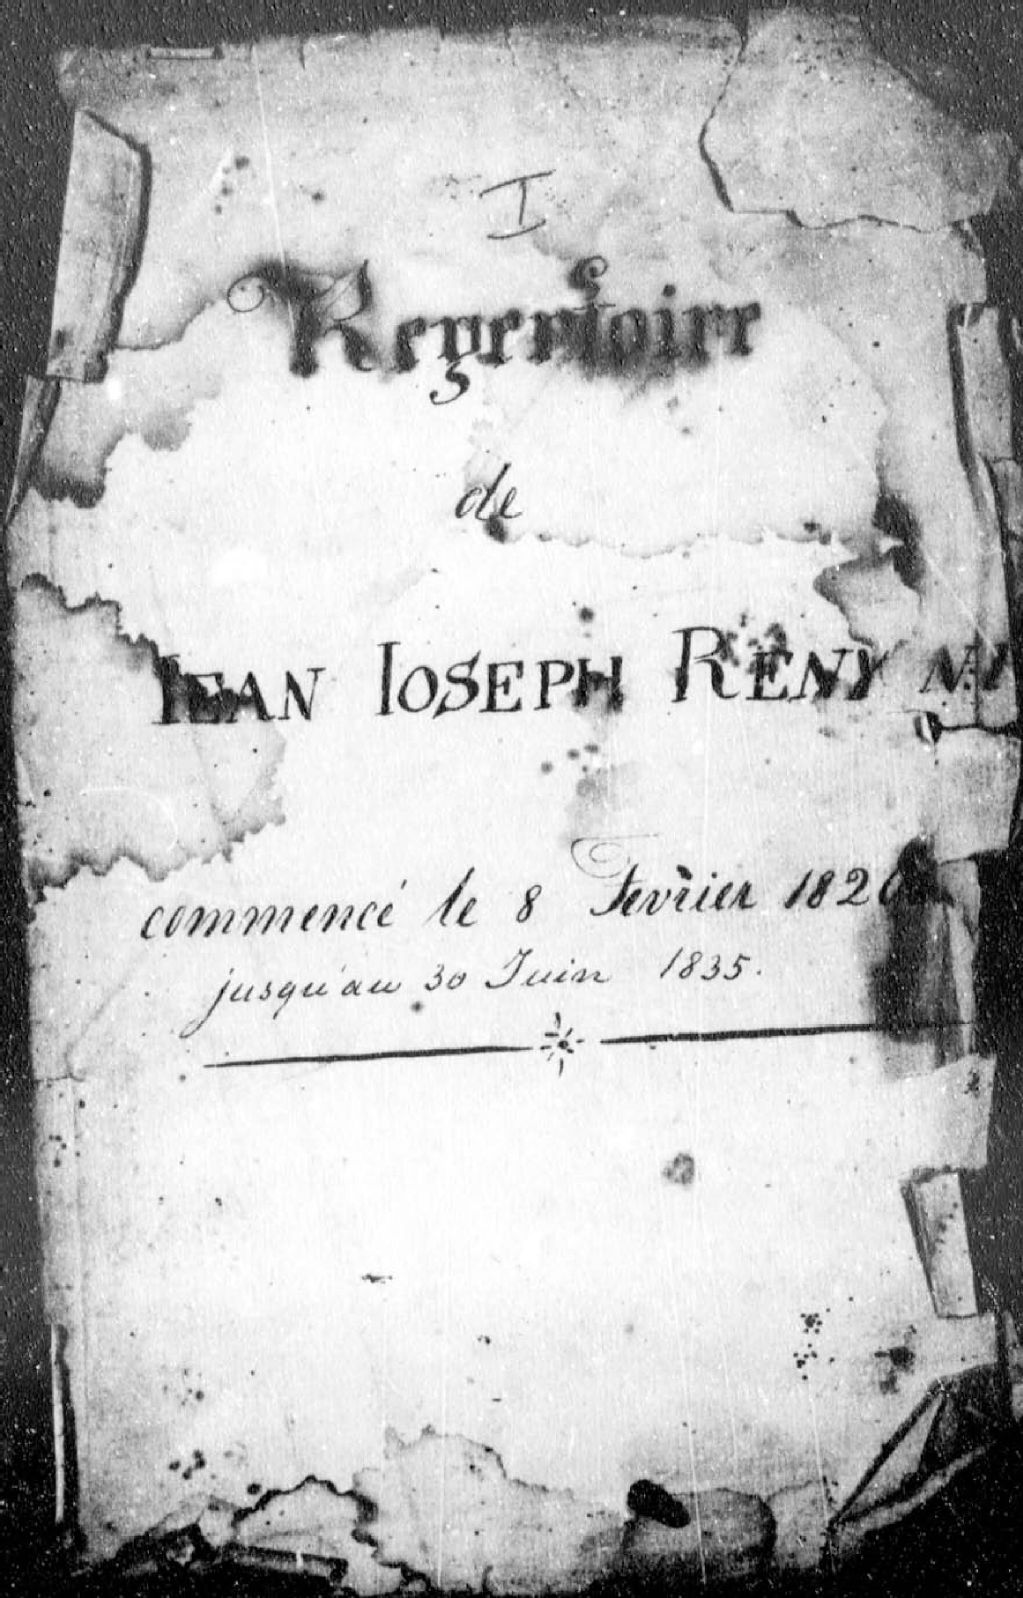 I
Repertoire
de
JEAN JOSEPH RENY N.P
commencé le 8 Fevrier 1826
jusqu'au 30 Juin 1835.